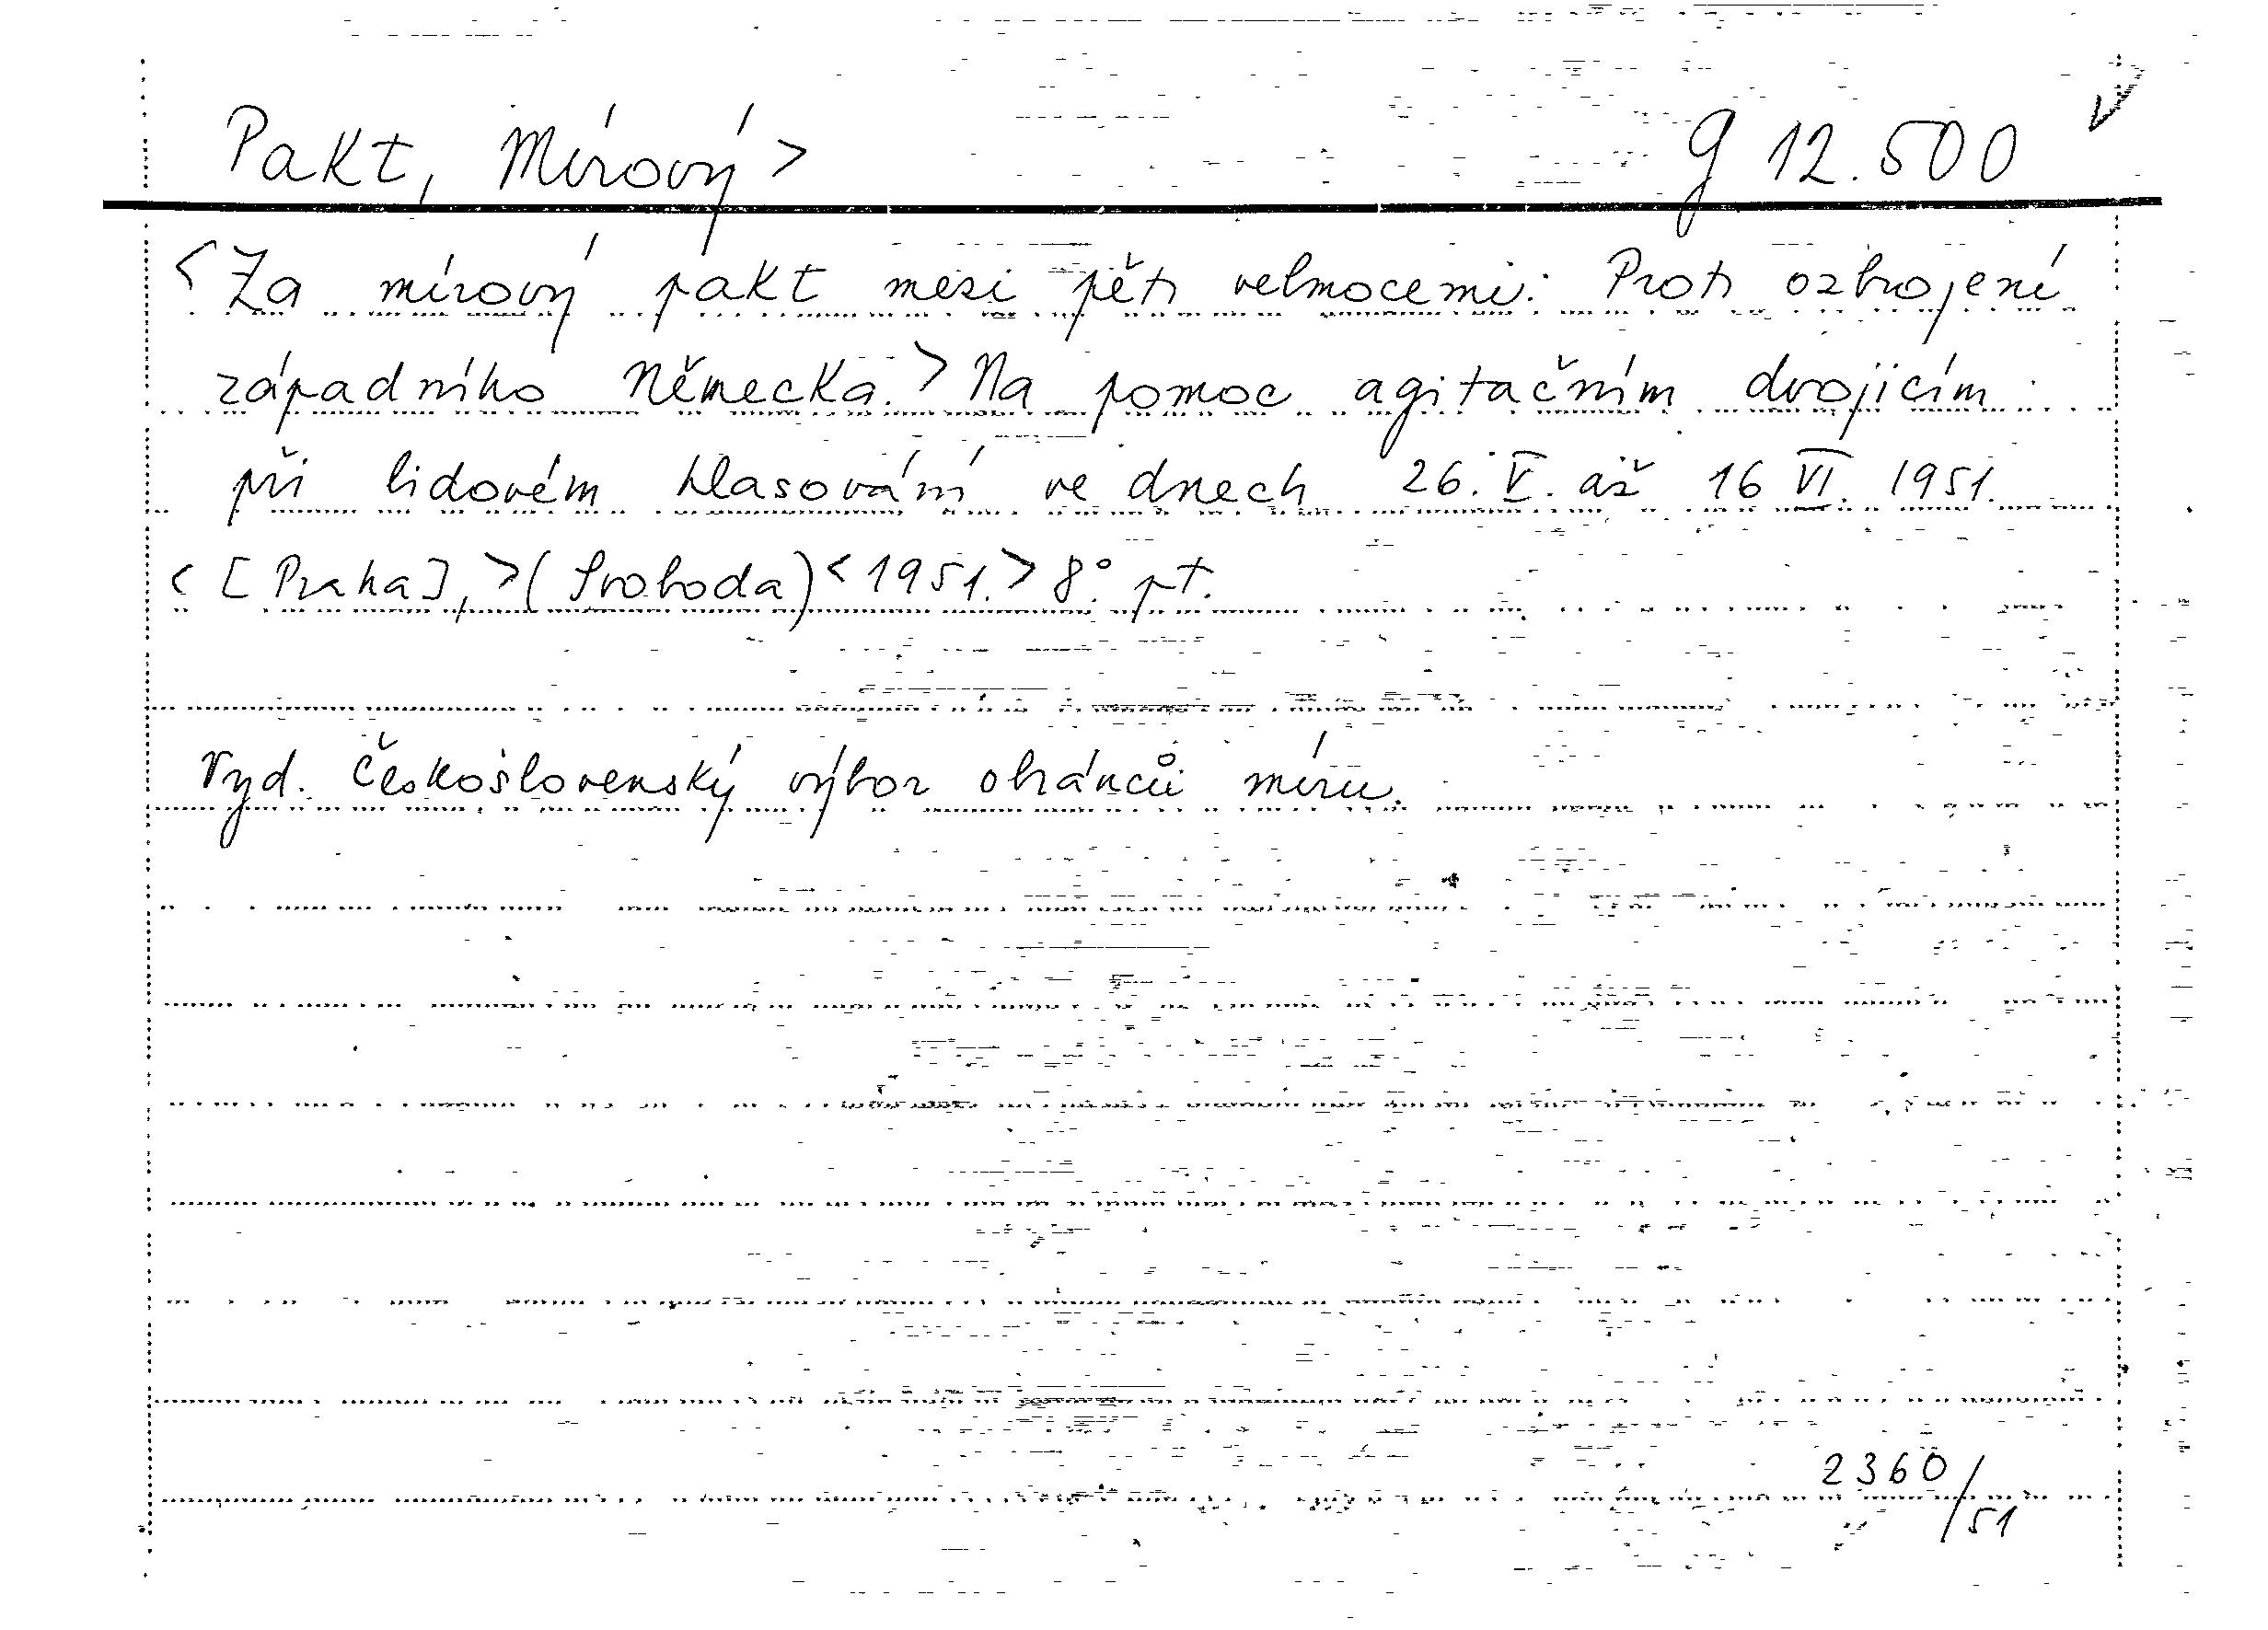 Pakt, Mírový > g 12.500
< Za mírový pakt mezi pěti velmocemi: Proti ozbrojení
západního Německa. > Na pomoc agitačním dvojicím
při lidovém hlasování ve dnech 26. V. až 16 VI. 1951.
< [Praha], > (Svoboda) < 1951. > 8°. pt.
Vyd. Československý výbor obránců míru.
2360/51